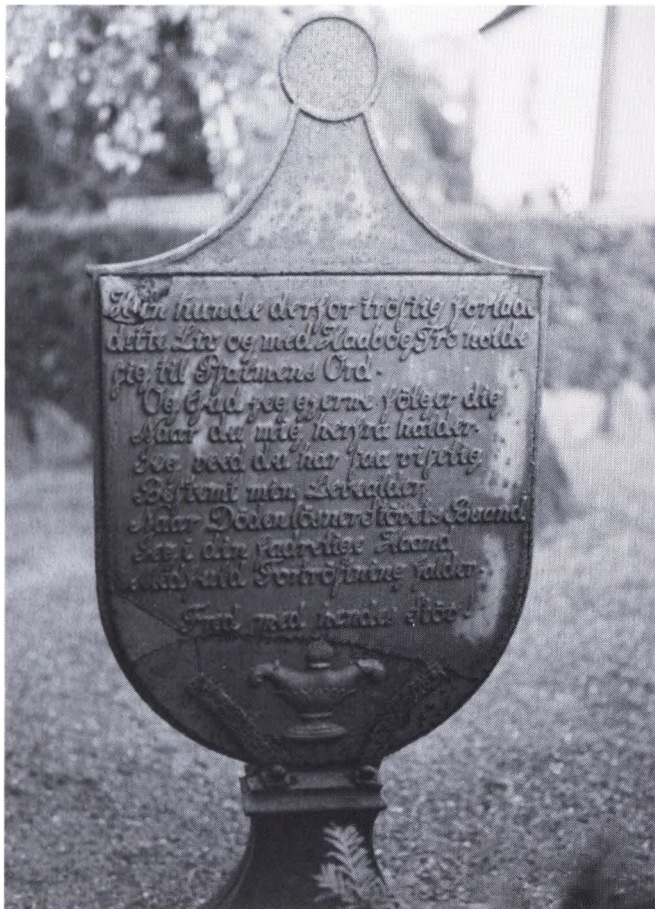 Hun kunde derfor tröstig forlade
dette Liv og med Haab og Tro holde
sig til Psalmens Ord.
Og Gud jeg gjerne fölger dig
Naar du mig herfra kalder.
Jeg veed du har saa viselig
Bestemt min Levealder.
Naar Döden lösner Stövets Baand
Jeg i din faderlige Haand
Med fuld Fortröstning falder.
Fred med hendes Stöv!